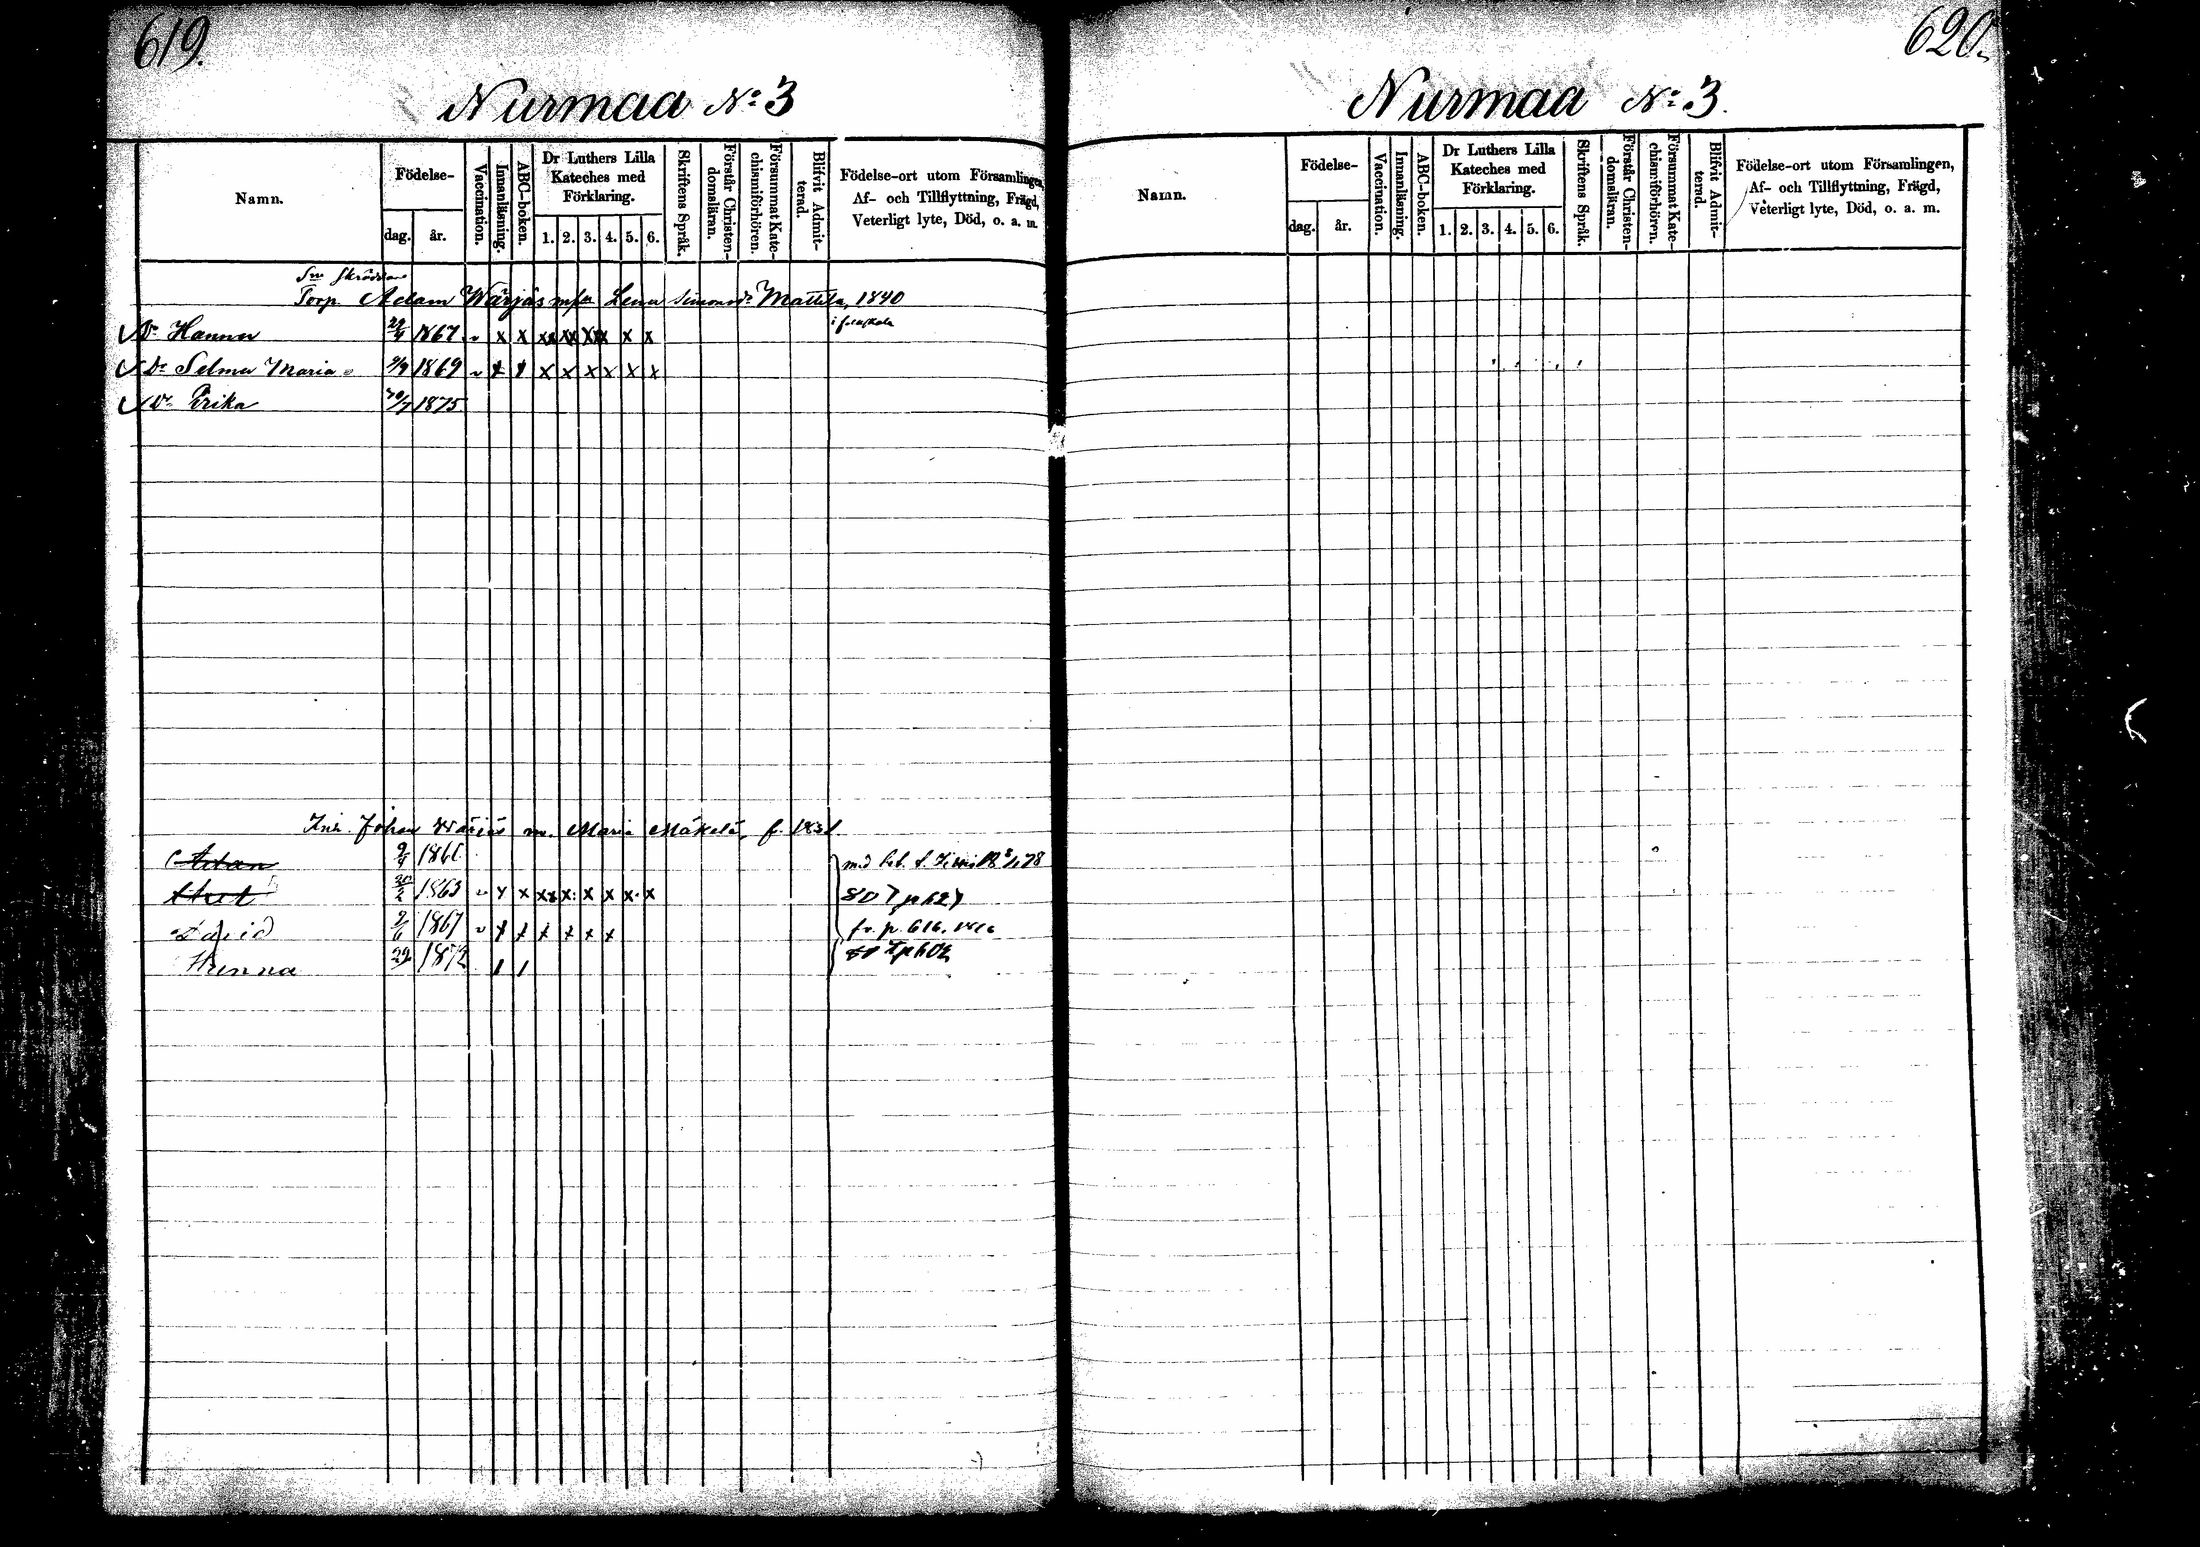 619.
Nurmaa No 3
Namn.
Födelse-
dag.
år.
Vaccination.
Innanläsning.
ABC-boken.
Dr Luthers Lilla
Kateches med
Förklaring.
1. 2. 3. 4. 5. 6.
Skriftens Språk.
Förstår Christen-
domsläran.
Försummat Kate-
chismiförhören.
Blifvit Admit-
terad.
Födelse-ort utom Församlingen,
Af- och Tillflyttning, Frägd,
Veterligt lyte, Död, o. a. m.
Torp. Adam Warjus Lena Simonsdr Mattila, 1840
Dr Hanna 1867 x x xx xx xxx x x
Dr Selma Maria 1869 x x x x x x x x
Dr Erika 1875
Johan Warjus m. Maria Mäkelä, f.
Adam 9/4
1863 x x xx x x x x x
David 1867 x x x x x x
fr. p. 616.
Hanna 1872
620.
Nurmaa No 3.
Namn.
Födelse-
dag.
år.
Vaccination.
Innanläsning.
ABC-boken.
Dr Luthers Lilla
Kateches med
Förklaring.
1. 2. 3. 4. 5. 6.
Skriftens Språk.
Förstår Christen-
domsläran.
Försummat Kate-
chismiförhören.
Blifvit Admit-
terad.
Födelse-ort utom Församlingen,
Af- och Tillflyttning, Frägd,
Veterligt lyte, Död, o. a. m.